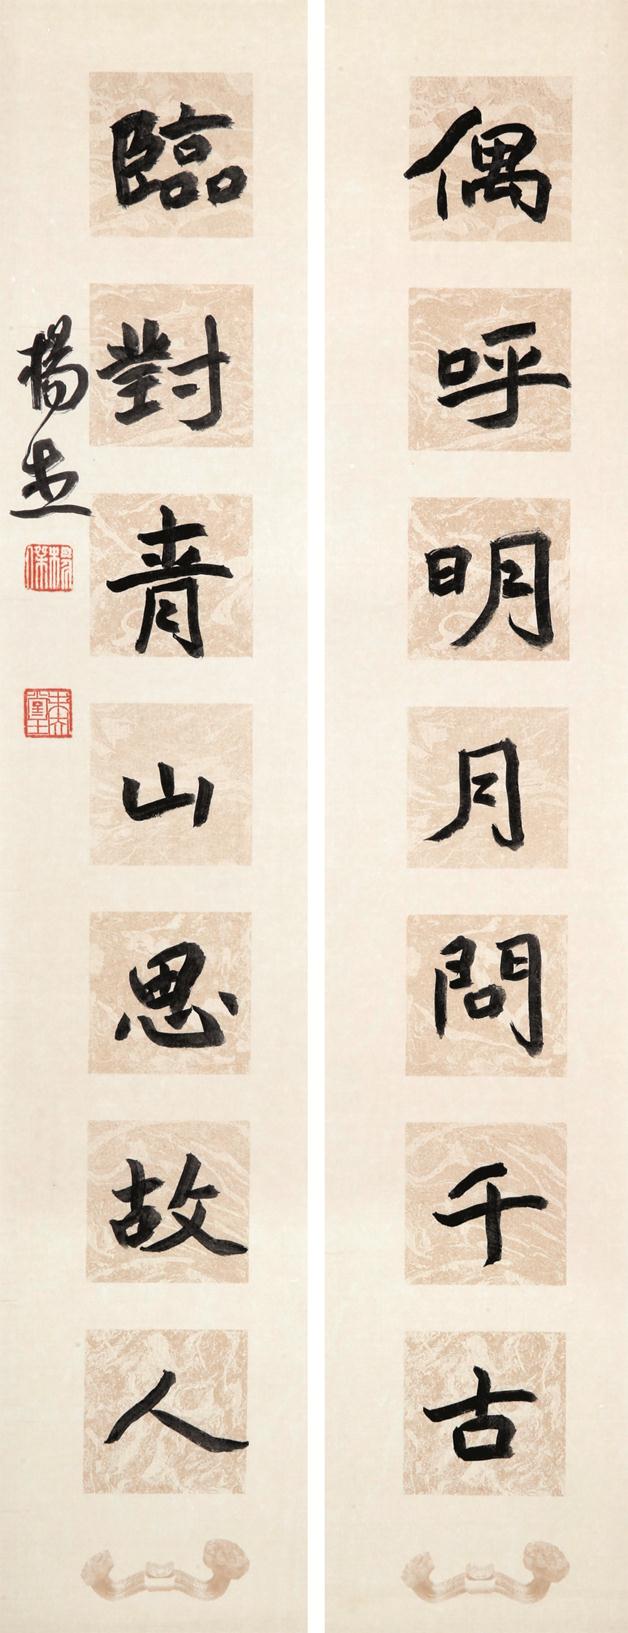 偶呼明月問千古
臨對青山思故人
楊杰
楊傑